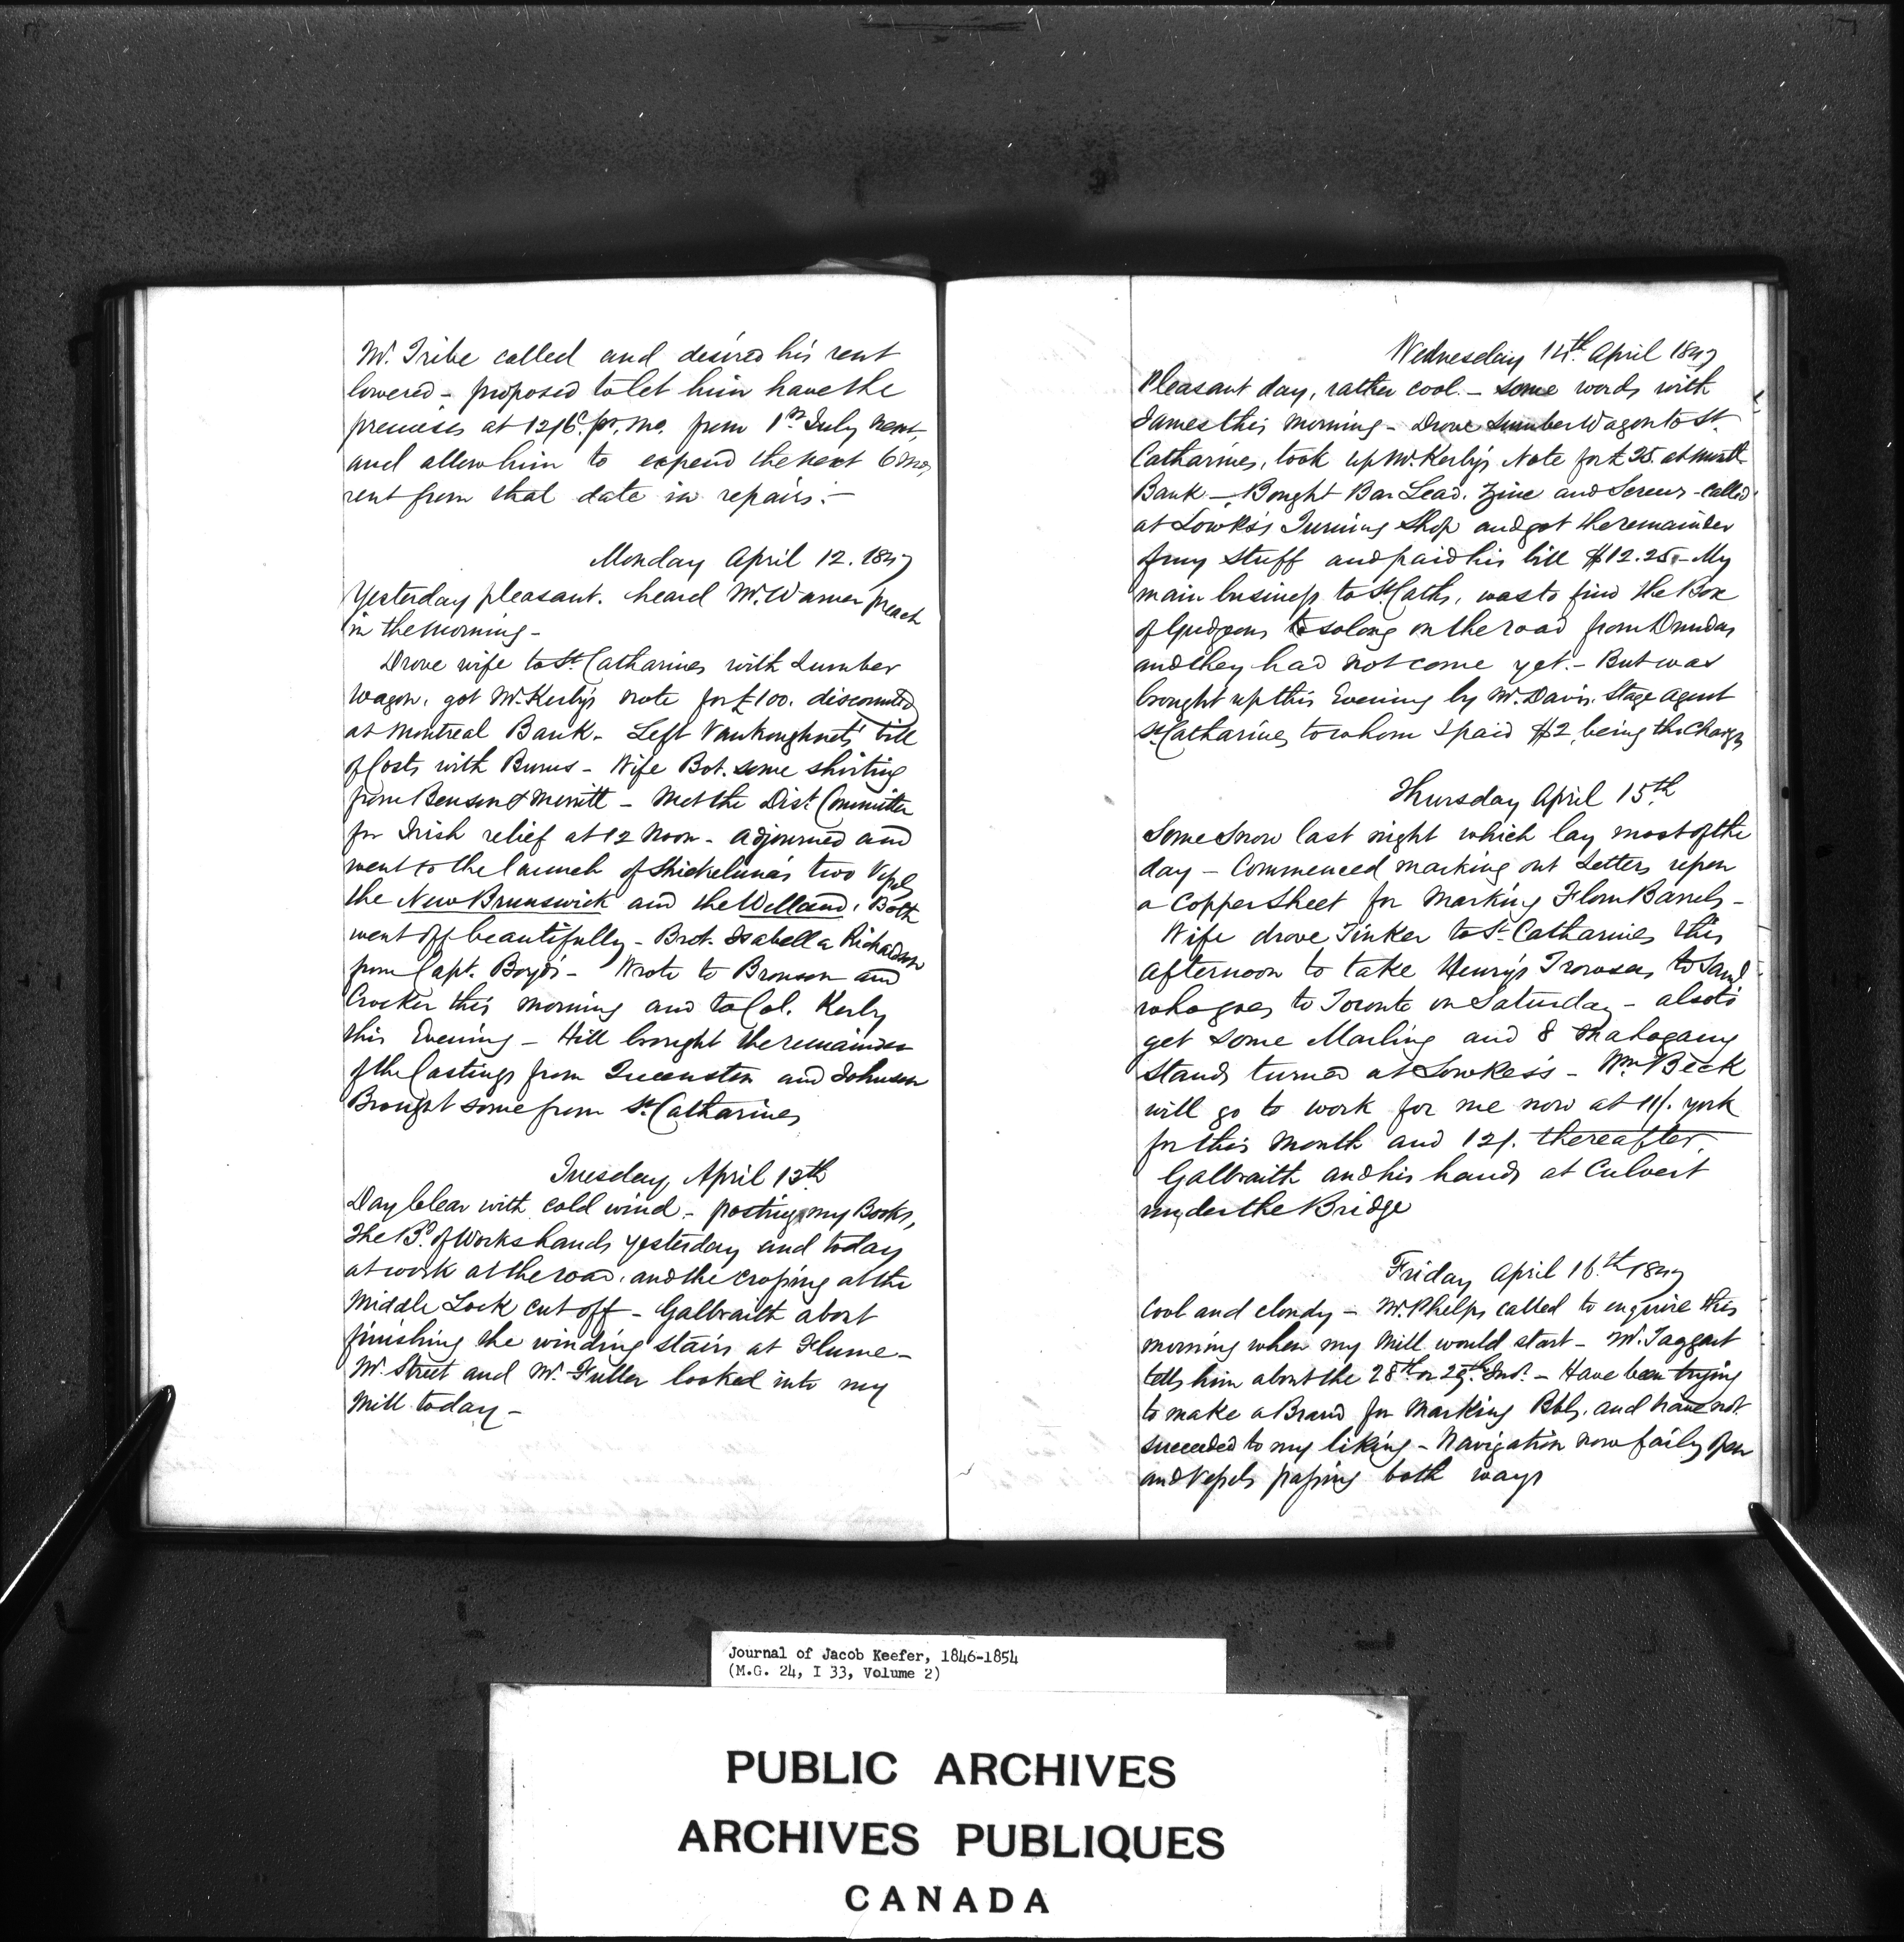 Mr. Tribe called and desired his rent
lowered - proposed to let him have the
premises at 12/6 c. pr. mo. from 1st July next,
and allow him to expend the next 6 mos,
rent from that date in repairs.-
Monday April 12. 1847
Yesterday pleasant. heard Mr. Warner preach
in the morning -
Drove wife to St. Catharines with Lumber
Wagon. got Mr. Kerby's note for £100. discounted
at Montreal Bank - Left Vankoughnets' bill
of Costs with Burns - Wife Bot. some shirting
from Benson & Merritt - Met the Dist. Committee
for Irish relief at 12 Noon - adjourned and
went to the launch of Shickeluna's two Vessels
the New Brunswick and the Welland. Both
went off beautifully - Brot. Isabella Richardson
from Capt. Boyd's - Wrote to Bronson and
Crocker this morning and to Col. Kerby
this Evening - Hill brought the remainder
of the Castings from Queenston and Johnson
Brought some from St. Catharines
Tuesday, April 13th
Day Clear with cold wind - posting my Books,
The Bd. of Works hands yesterday and today
at work at the road, and the crossing at the
Middle Lock cut off - Galbraith about
finishing the winding stairs at Flume -
Mr. Street and Mr. Fuller looked into my
Mill today -
Wednesday 14th. April 1847
Pleasant day, rather cool. - some words with
James this morning - Drove Lumber Wagon to St.
Catharines, took up Mr. Kerby's Note for £25. at Montl.
Bank - Bought Bar Lead. Zinc and Screws - Called
at Lowke's Turning Shop and got the remainder
of my stuff and paid his bill $12.25 - My
main business to St. Caths, was to find the Box
of Gudgeons so long on the road from Dundas
and they had not come yet. - But was
brought up this Evening by Mr. Davis. Stage agent
St. Catharines to whom I paid $2, being the Charges
Thursday April 15th
Some Snow last night which lay most of the
day - Commenced marking out Letters upon
a Copper Sheet for Marking Flour Barrels -
Wife drove Tinker to St. Catharines this
afternoon to take Henry's Trowsers to
who goes to Toronto on Saturday - also to
get some Marling and 8 Mahogany
Stands turned at Lowke's - Wm. Beck
will go to work for me now at 11/. york
for this month and 12/. thereafter.
Galbraith and his hands at Culvert
under the Bridge
Friday April 16.th 1847
Cool and cloudy - Mr. Phelps called to enquire this
morning when my Mill would start - Mr. Taggart
tells him about the 28th or 29th. Inst. - Have been trying
to make a Brand for Marking Bbls. and have not
succeeded to my liking - Navigation now fairly open
and Vessels passing both ways
Journal of Jacob Keefer, 1846-1854
(M.G. 24, I 33, Volume 2)
PUBLIC ARCHIVES
ARCHIVES PUBLIQUES
CANADA